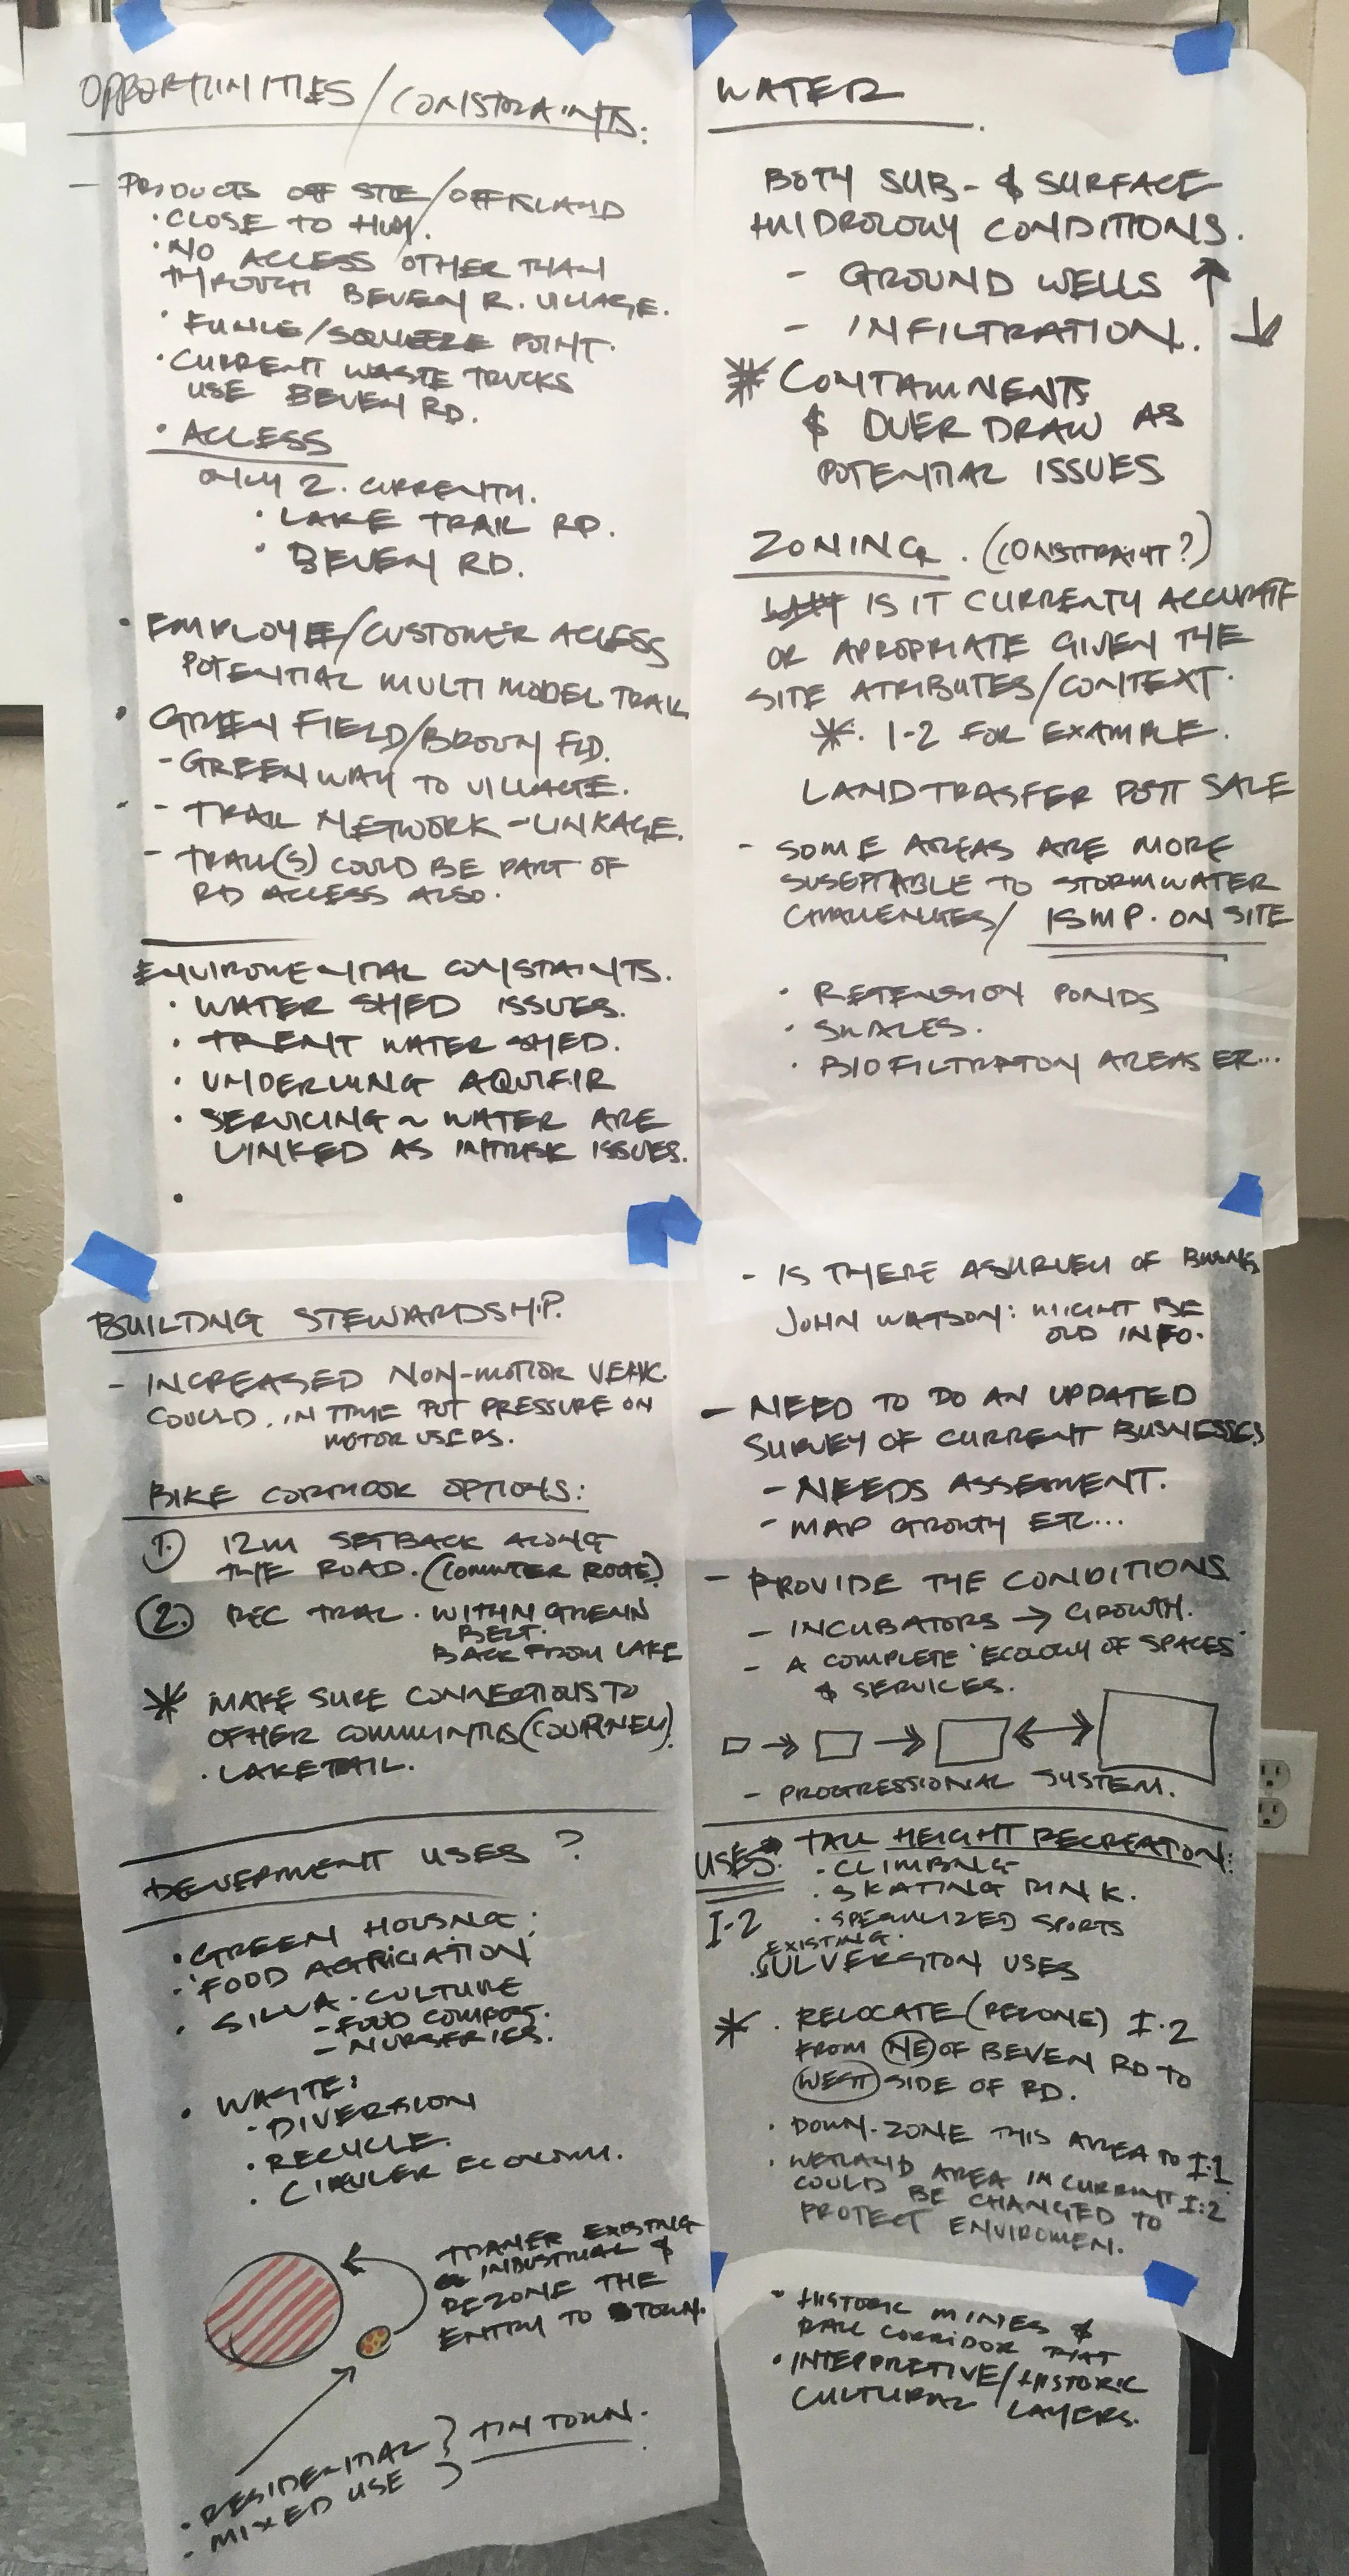 OPPORTUNITIES/CONSTRAINTS:
- PRODUCTS OFF SITE/OFF ISLAND
· CLOSE TO HWY.
· NO ACCESS OTHER THAN
THROUGH BEVEN R. VILLAGE.
· FUNLE/SQUEEZE POINT.
· CURRENT WASTE TRUCKS
USE BEVEN RD.
· ACCESS
ONLY 2. CURRENTLY.
· LAKE TRAIL RD.
· BEVEN RD.
· EMPLOYEE/CUSTOMER ACCESS
POTENTIAL MULTI MODEL TRAIL
· GREEN FIELD/BROWN FLD.
- GREENWAY TO VILLAGE.
· - TRAIL NETWORK - LINKAGE.
- TRAIL(S) COULD BE PART OF
RD ACCESS ALSO.
ENVIROMENTAL CONSTAINTS.
· WATER SHED ISSUES.
· TRENT WATER SHED.
· UNDERLYING AQUIFIR
· SERVICING ~ WATER ARE
LINKED AS INTRISK ISSUES.
·
WATER.
BOTH SUB- & SURFACE
HYDROLOGY CONDITIONS.
- GROUND WELLS ↑
- INFILTRATION. ↓
* CONTAMNENTS
& OVER DRAW AS
POTENTIAL ISSUES
ZONING. (CONSTRAINT?)
IS IT CURRENTY ACCURATE
OR APROPRIATE GIVEN THE
SITE ATRIBUTES/CONTEXT.
* I-2 FOR EXAMPLE.
LAND TRASFER POTT SALE
- SOME AREAS ARE MORE
SUSEPTABLE TO STORMWATER
CHALLENGES/ ISMP. ON SITE
· RETENSION PONDS
· SWALES.
· BIOFILTRATON AREAS ER...
BUILDING STEWARDSHIP.
- INCREASED NON-MOTOR VEHIC.
COULD. IN TIME PUT PRESSURE ON
MOTOR USERS.
BIKE CORRIDOR OPTIONS:
1. 12m SETBACK ALONG
THE ROAD. (COMMUTER ROUTE)
2. REC TRIAL. WITHIN GREENN
BELT.
BACK FROM LAKE
* MAKE SURE CONNECTIONS TO
OTHER COMMUNITIES (COURTNEY)
· LAKETAIL.
DEVELPMENT USES ?
· GREEN HOUSING:
· FOOD AGRICIATION
· SILVA-CULTURE
- FOOD COMPOST.
- NURSERIES.
· WASTE:
· DIVERSION
· RECYCLE.
· CIRULER ECONOMY.
TRANER EXISTING
INDUSTRIAL &
REZONE THE
ENTRY TO TOWN.
· RESIDENTIAL
· MIXED USE } TIN TOWN.
- IS THERE A SURVEY OF BUSINS
JOHN WATSON: MIGHT BE
OLD INFO.
- NEED TO DO AN UPDATED
SURVEY OF CURRENT BUSNESSES
- NEEDS ASSESMENT.
- MAP GROWTH ETC...
- PROVIDE THE CONDITIONS
- INCUBATORS → GROWTH.
- A COMPLETE 'ECOLOGY OF SPACES'
& SERVICES.
- PROGRESSIONAL SYSTEM.
USES: TALL HEIGHT RECREATION:
· CLIMBING
· SKATING RINK.
I-2 · SPECIALIZED SPORTS
EXISTING.
· ULVERSTON USES
* · RELOCATE (REZONE) I.2
FROM NE OF BEVEN RD TO
WEST SIDE OF RD.
· DOWN-ZONE THIS AREA TO I.1
· WETLAND AREA IN CURRENT I:2
COULD BE CHANGED TO
PROTECT ENVIROMEN.
· HISTORIC MINES &
RAIL CORRIDOR THAT
· INTERPRETIVE/HISTORIC
CULTURAL LAYERS.